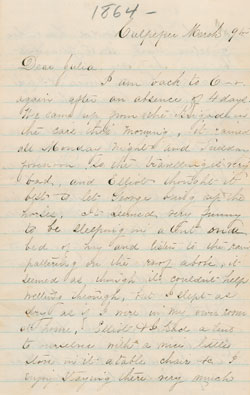 1864 -
Culpeper March
Dear Julia
I am back to C
again after an absence of 4 days
We came up from the Brigade in
the cars this morning. it rained
all Monday night and Tuesday
forenoon so the travelling is very
bad, and Elliott thought it
best to let George bring up the
horses. It seemed very funny
to be sleeping on a on a
bed of hay and listen to the rain
pattering on the roof above, it
seemed as though it couldn't help
wetting through, but I slept as
dry as if I were in my own room
at home. Elliott & I had a tent
to ourselves with a nice little
stove in it a table chair &c I
enjoy staying there very much